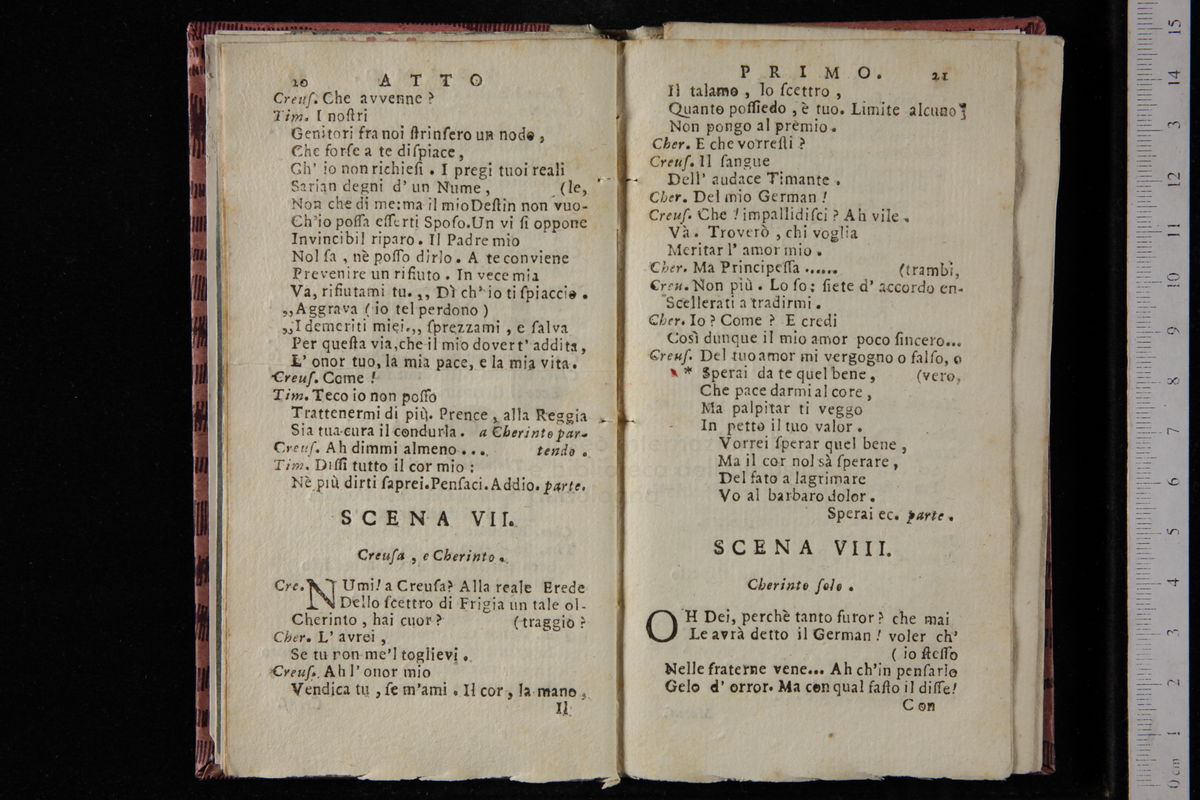 20 ATTO
Creuſ. Che avvenne ?
Tim. I noſtri
Genitori fra noi ſtrinſero un nodo ,
Che forſe a te diſpiace ,
Ch' io non richieſi . I pregi tuoi reali
Sarian degni d' un Nume , (le,
Non che di me: ma il mio Deſtin non vuo-
Ch'io poſſa eſſerti Spoſo. Un vi ſi oppone
Invincibil riparo . Il Padre mio
Nol ſa , nè poſſo dirlo . A te conviene
Prevenire un rifiuto . In vece mia
Va, rifiutami tu. ,, Dì ch' io ti ſpiaccio .
,, Aggrava ( io tel perdono )
,, I demeriti miei. ,, ſprezzami , e ſalva
Per queſta via, che il mio dover t' addita,
L' onor tuo, la mia pace, e la mia vita.
Creuſ. Come !
Tim. Teco io non poſſo
Trattenermi di più. Prence , alla Reggia
Sia tua cura il condurla . a Cherinto par-
Creuſ. Ah dimmi almeno . . . tendo .
Tim. Diſſi tutto il cor mio :
Nè più dirti ſaprei. Penſaci. Addio. parte.
SCENA VII.
Creuſa , e Cherinto .
Cre. NUmi! a Creuſa? Alla reale Erede
Dello ſcettro di Frigia un tale ol-
Cherinto , hai cuor ? (traggio ?
Cher. L' avrei ,
Se tu non me'l toglievi .
Creuſ. Ah l' onor mio
Vendica tu , ſe m'ami . Il cor , la mano ,
Il
PRIMO. 21
Il talamo , lo ſcettro ,
Quanto poſſiedo , è tuo. Limite alcuno
Non pongo al premio .
Cher. E che vorreſti ?
Creuſ. Il ſangue
Dell' audace Timante .
Cher. Del mio German !
Creuſ. Che ! impallidiſci ? Ah vile .
Và . Troverò , chi voglia
Meritar l' amor mio .
Cher. Ma Principeſſa ...... (trambi,
Creu. Non più . Lo ſo : ſiete d' accordo en-
Scellerati a tradirmi .
Cher. Io ? Come ? E credi
Così dunque il mio amor poco ſincero...
Creuſ. Del tuo amor mi vergogno o falſo, o
* Sperai da te quel bene , (vero,
Che pace darmi al core ,
Ma palpitar ti veggo
In petto il tuo valor .
Vorrei ſperar quel bene ,
Ma il cor nol sà ſperare ,
Del fato a lagrimare
Vo al barbaro dolor .
Sperai ec. parte .
SCENA VIII.
Cherinto ſolo .
OH Dei, perchè tanto furor ? che mai
Le avrà detto il German ! voler ch'
( io ſteſſo
Nelle fraterne vene... Ah ch'in penſarlo
Gelo d' orror. Ma con qual faſto il diſſe!
Con
15
14
3
12
11
10
9
8
7
6
5
4
3
2
1
0 cm